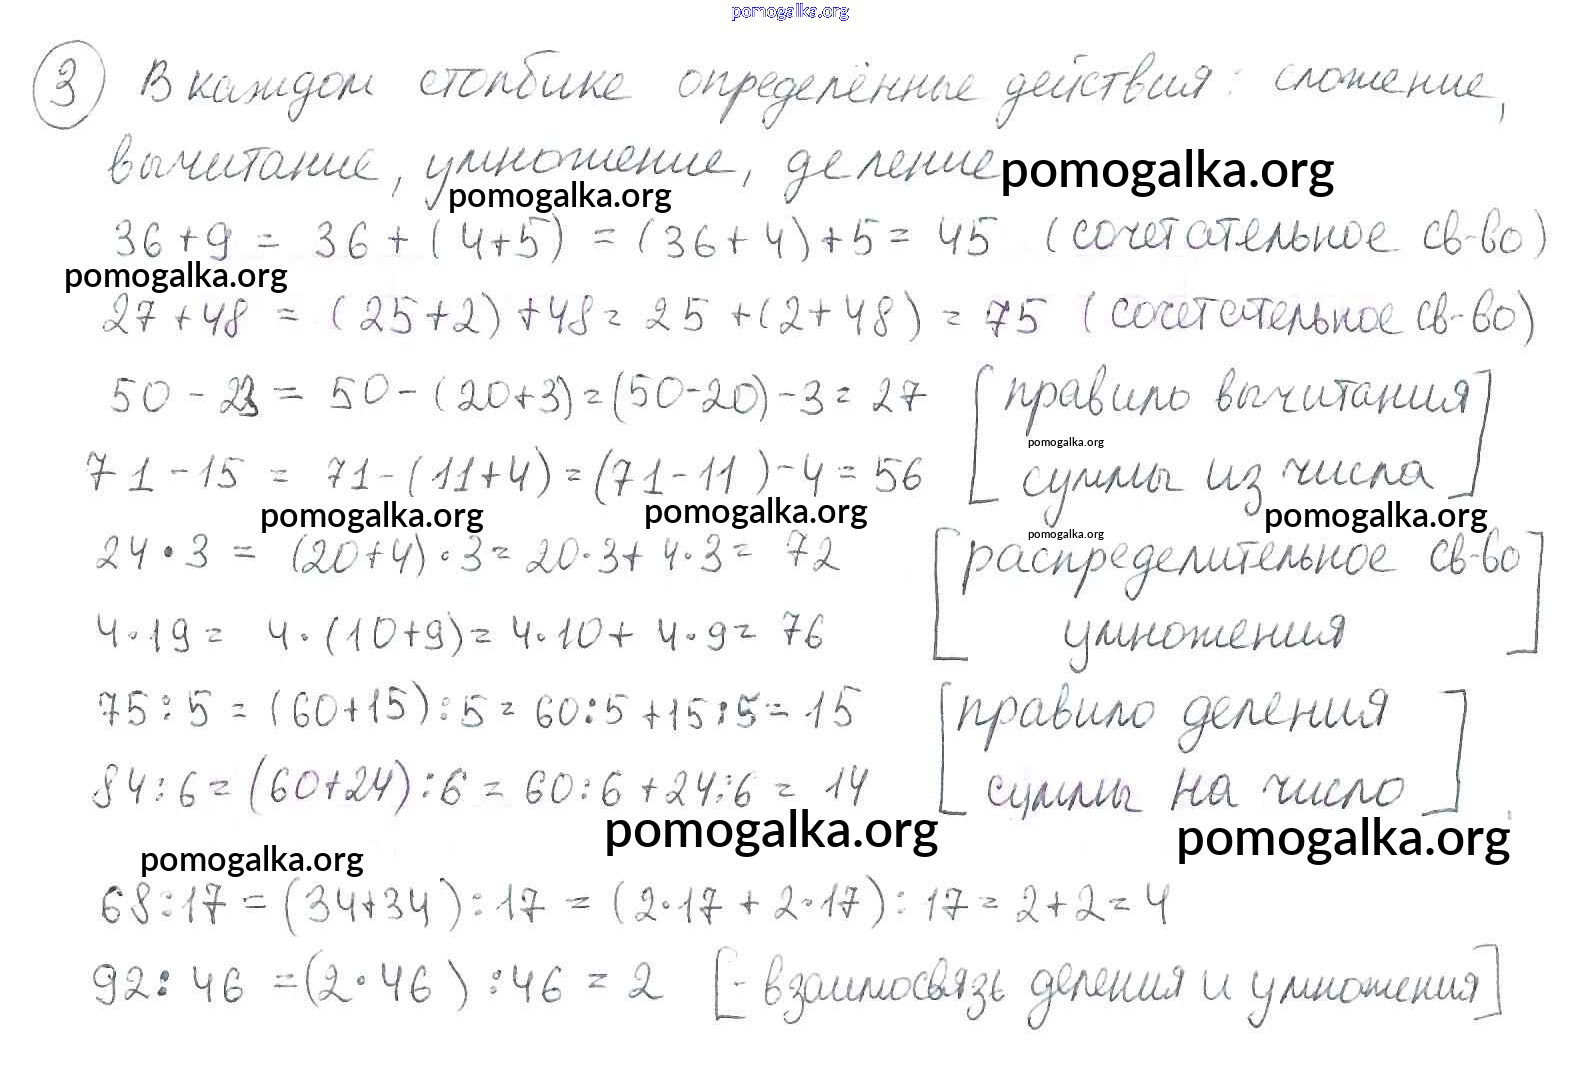 pomogalka.org
3 В каждом столбике определённые действия: сложение,
вычитание, умножение, деление pomogalka.org
pomogalka.org
36+9 = 36 + (4+5) = (36+4)+5 = 45 (сочетательное св-во)
pomogalka.org
27+48 = (25+2)+48 = 25+(2+48) = 75 (сочетательное св-во)
50 - 23 = 50 - (20+3) = (50-20)-3 = 27 [правило вычитания]
pomogalka.org
71 - 15 = 71-(11+4) = (71-11)-4 = 56 [суммы из числа]
pomogalka.org pomogalka.org pomogalka.org
pomogalka.org
24•3 = (20+4)•3 = 20•3+4•3 = 72 [распределительное св-во]
4•19 = 4•(10+9) = 4•10+4•9 = 76 [умножения]
75:5 = (60+15):5 = 60:5+15:5 = 15 [правило деления]
84:6 = (60+24):6 = 60:6+24:6 = 14 [суммы на число]
pomogalka.org pomogalka.org
pomogalka.org
68:17 = (34+34):17 = (2•17+2•17):17 = 2+2 = 4
92:46 = (2•46):46 = 2 [- взаимосвязь деления и умножения]